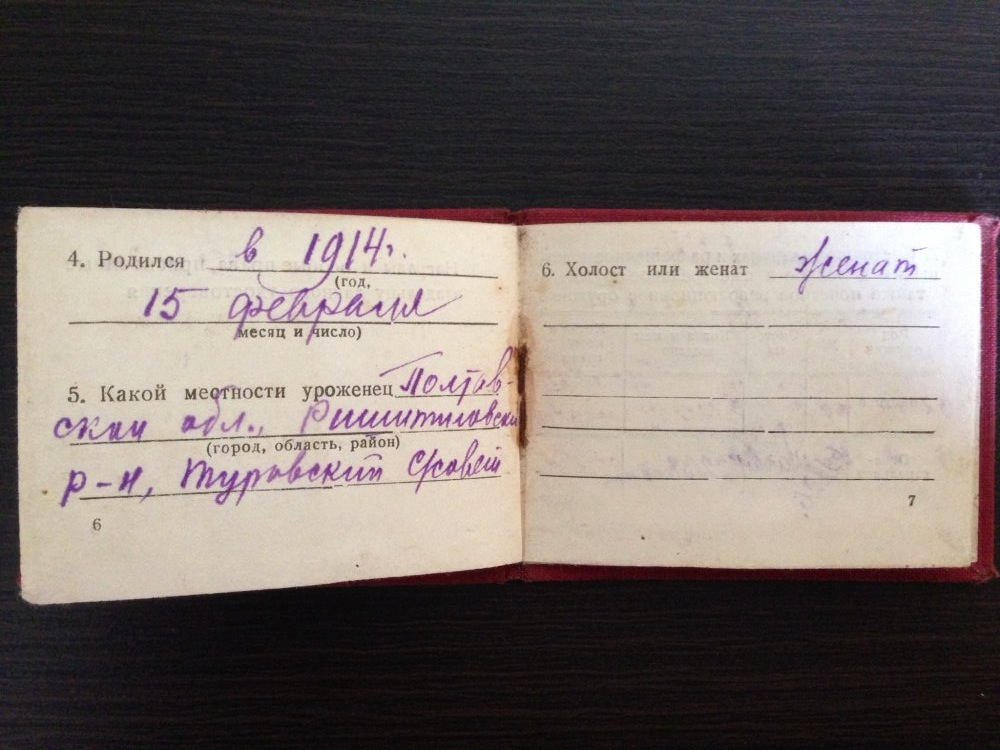 4. Родился в 1914 г.
(год,
15 февраля
месяц и число)
5. Какой местности уроженец Полтав-
ской обл.,
(город, область, район)
р-н, Туровский с/совет
6
6. Холост или женат женат
7